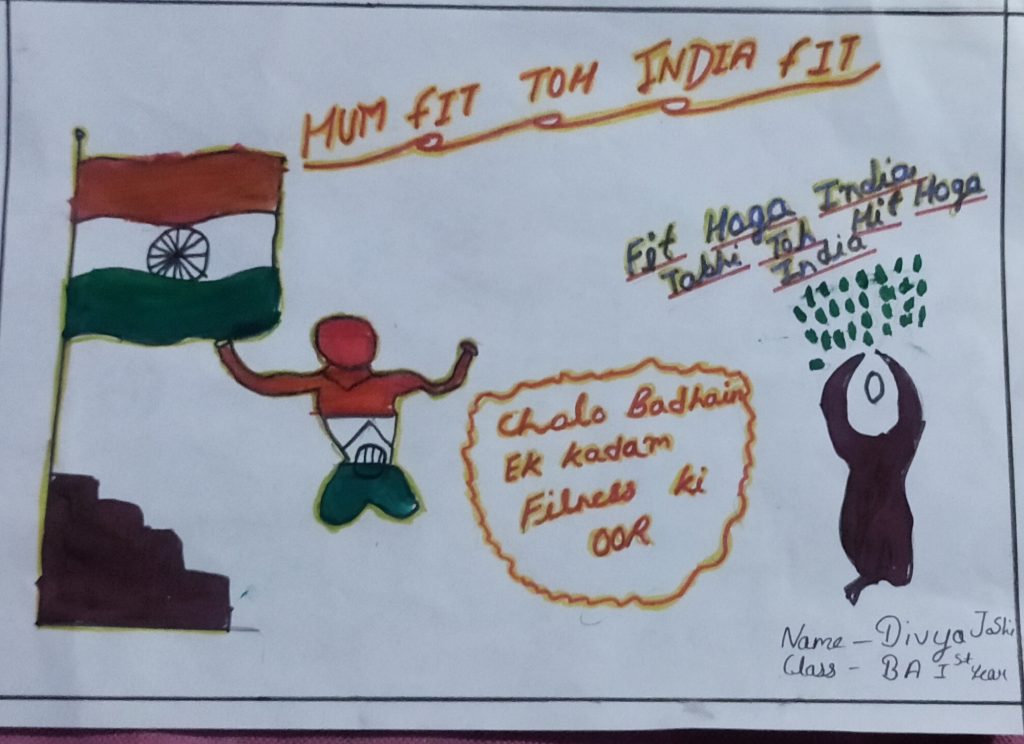 HUM FIT TOH INDIA FIT
Fit Hoga India
Tabhi Toh Hit Hoga
India
Chalo Badhain
Ek kadam
Fitness ki
OOR
Name - Divya Joshi
Class - BA Ist Year